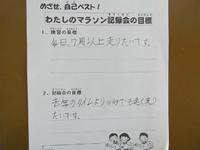 めざせ、自己ベスト!
わたしのマラソン記録会の目標
1．練習の目標
毎日、7周以上走りたいです。
2．記録会の目標
去年のタイムより
速く走り
たいです。